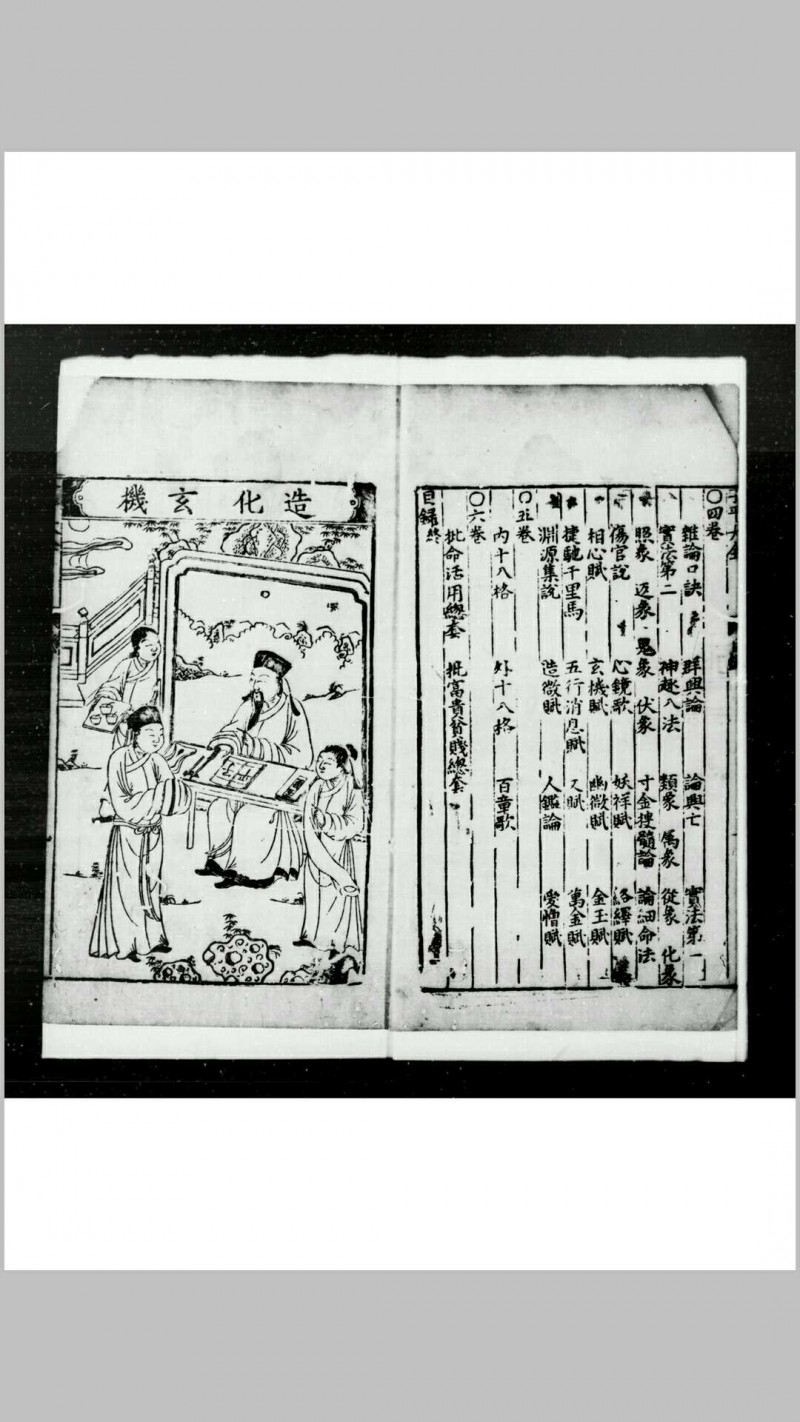 〇四卷
雜論口訣 群興論 論興亡 寳法第一
寳法第二 神趣八法 類象 属象 從象 化象
照象 返象 鬼象 伏象 寸金搜髓論 論細命法
傷官說 心鏡歌 妖祥賦 絡繹賦
相心賦 玄機賦 幽微賦 金玉賦
捷馳千里馬 五行消息賦 又賦 萬金賦
淵源集說 造微賦 人鑑論 愛憎賦
〇五卷
内十八格 外十八格 百章歌
〇六卷
批命活用總套 批富貴貧賤總套
目録終
造化玄機